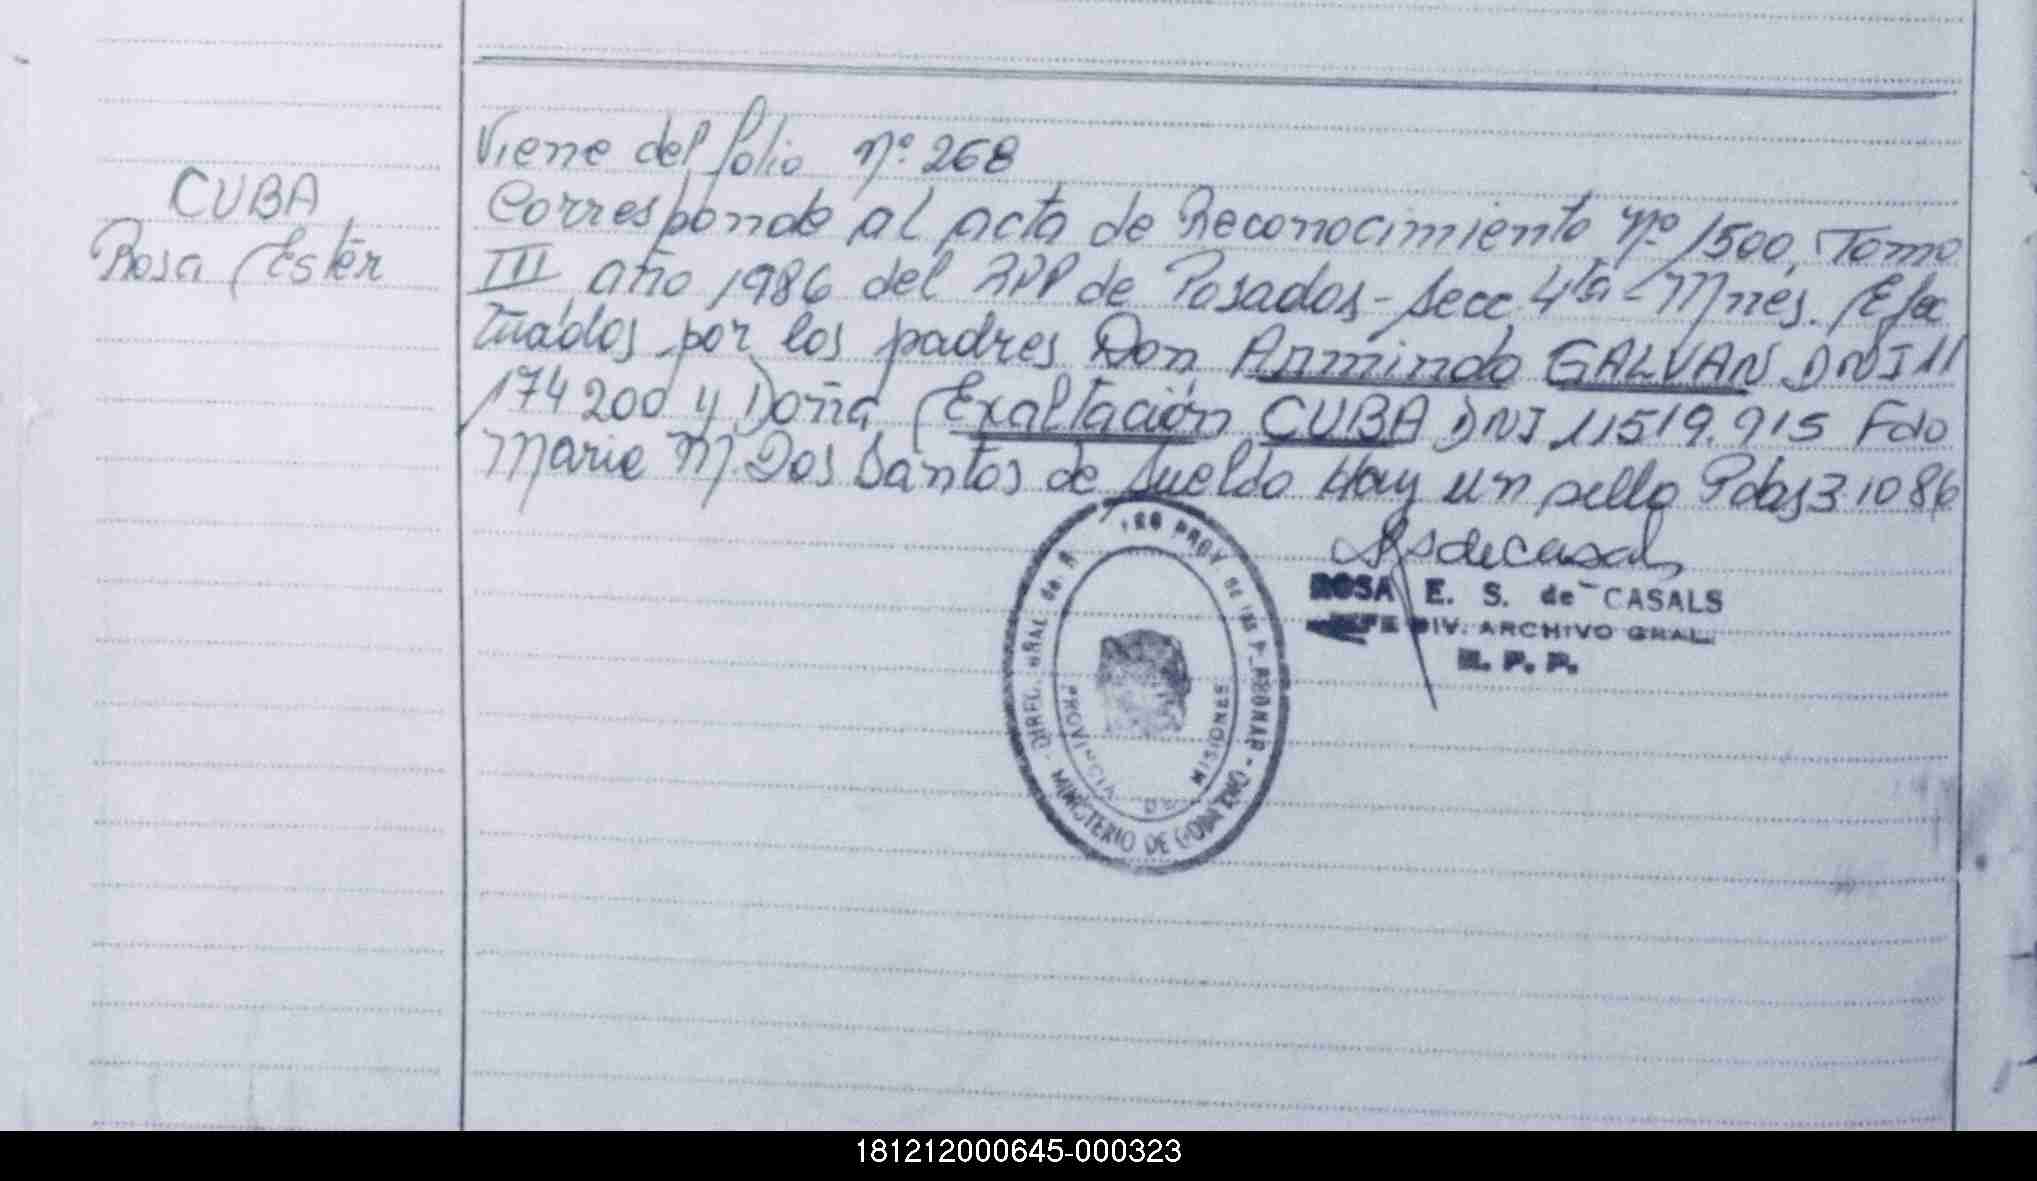 Viene del folio nº 268
CUBA
Rosa Ester
Corresponde al acta de Reconocimiento nº 1500, Tomo
III año 1986 del RPP de Posadas - secc. 4ta - Mnes. Efec
tuados por los padres Don Armindo GALVAN DNI 11
174 200 y Doña Exaltación CUBA DNI 11519.915 Fdo
Marie M. Dos Santos de Sueldo Hay un sello Pdas 3 10 86
ROSA E. S. de CASALS
JEFE DIV. ARCHIVO GRAL.
R. P. P.
DIREC. GRAL de PROV de las PERSONAS - MINISTERIO DE GOBIERNO -
PROVINCIA DE MISIONES
181212000645-000323